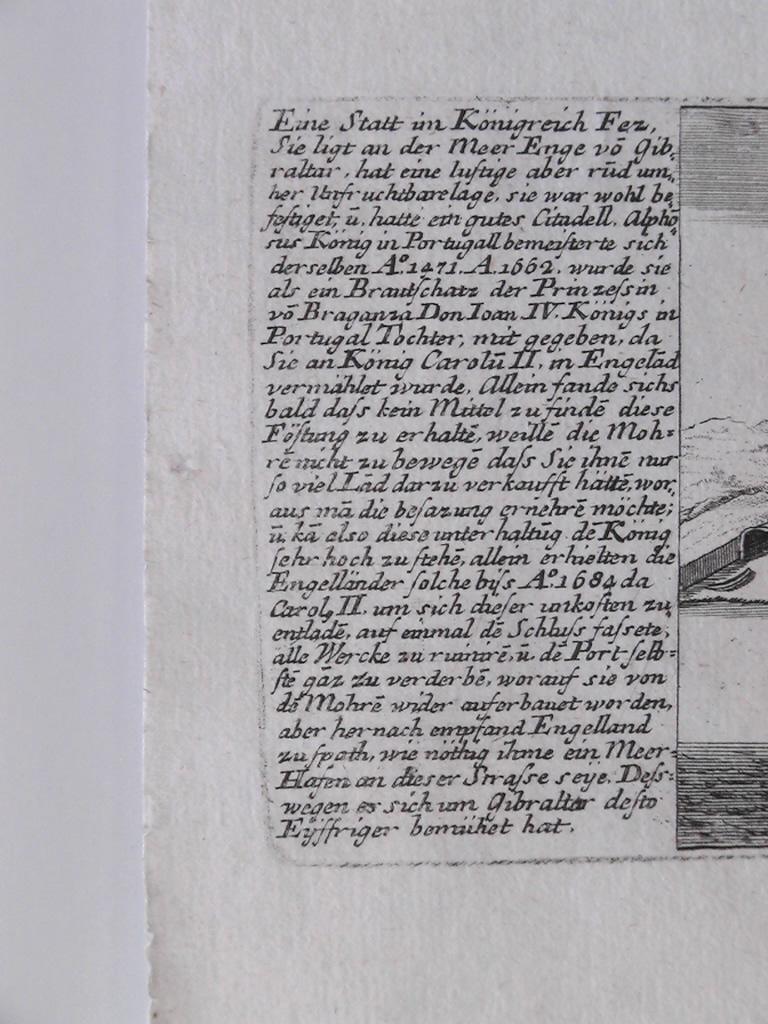 Eine Statt im Königreich Fez,
Sie ligt an der Meer Enge vō Gib,
raltar, hat eine luſtige aber rūd um,
her Unfruchtbare lage, sie war wohl be,
feſtiget, ū. hatte ein gutes Citadell. Alphō
sus König in Portugall bemeiſterte sich
derselben Aº. 1471. A. 1662. wurde sie
als ein Brautſchatz der Prinzeſsin
vō Braganza Don Ioan IV. Königs in
Portugal Tochter, mit gegeben, da
Sie an König Carolū II, in Engelād
vermählet wurde. Allein fande sichs
bald daſs kein Mittel zu findē diese
Föſtung zu erhaltē, weillē die Moh=
rē nicht zu bewegē daſs Sie ihnē nur
so viel Lād darzu verkaufft hättē, wor,
aus mā die besazung ernehrē möchte;
ū. kā also diese unterhaltūg dē König
ſehr hoch zu ſtehē, allein erhielten die
Engelländer ſolche biſs Aº. 1684 da
Carol, II. um sich dieſer unkoſten zu
entladē, auf einmal dē Schluſs faſsete,
alle Wercke zu ruinirē, ū. dē Port ſelb=
ſtē gāz zu verderbē, worauf sie von
dē Mohrē wider auferbauet worden,
aber hernach empfand Engelland
zu ſpath, wie nöthig ihme ein Meer=
Hafen an dieser Straſse seye. Deſs=
wegen es sich um Gibraltar deſto
Eÿffriger bemühet hat.